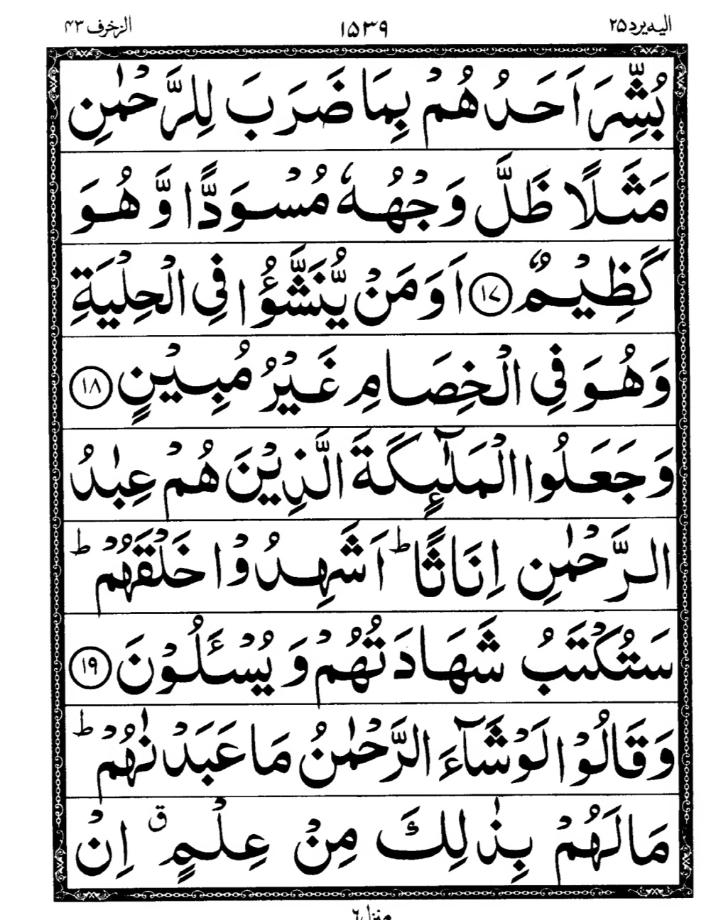 الیہ یرد ۲۵ ۱۵۳۹ الزخرف ۴۳
بُشِّرَ اَحَدُهُمْ بِمَا ضَرَبَ لِلرَّحْمٰنِ
مَثَلًا ظَلَّ وَجْهُهٗ مُسْوَدًّا وَّ هُوَ
كَظِيْمٌ ۝۱۷ اَوَ مَنْ يُّنَشَّؤُا فِي الْحِلْيَةِ
وَ هُوَ فِي الْخِصَامِ غَيْرُ مُبِيْنٍ ۝۱۸
وَ جَعَلُوا الْمَلٰٓىِٕكَةَ الَّذِيْنَ هُمْ عِبٰدُ
الرَّحْمٰنِ اِنَاثًا ؕ اَشَهِدُوْا خَلْقَهُمْ ؕ
سَتُكْتَبُ شَهَادَتُهُمْ وَ يُسْـَٔلُوْنَ ۝۱۹
وَ قَالُوْا لَوْ شَآءَ الرَّحْمٰنُ مَا عَبَدْنٰهُمْ ؕ
مَا لَهُمْ بِذٰلِكَ مِنْ عِلْمٍ ۗ اِنْ
منزل ۶